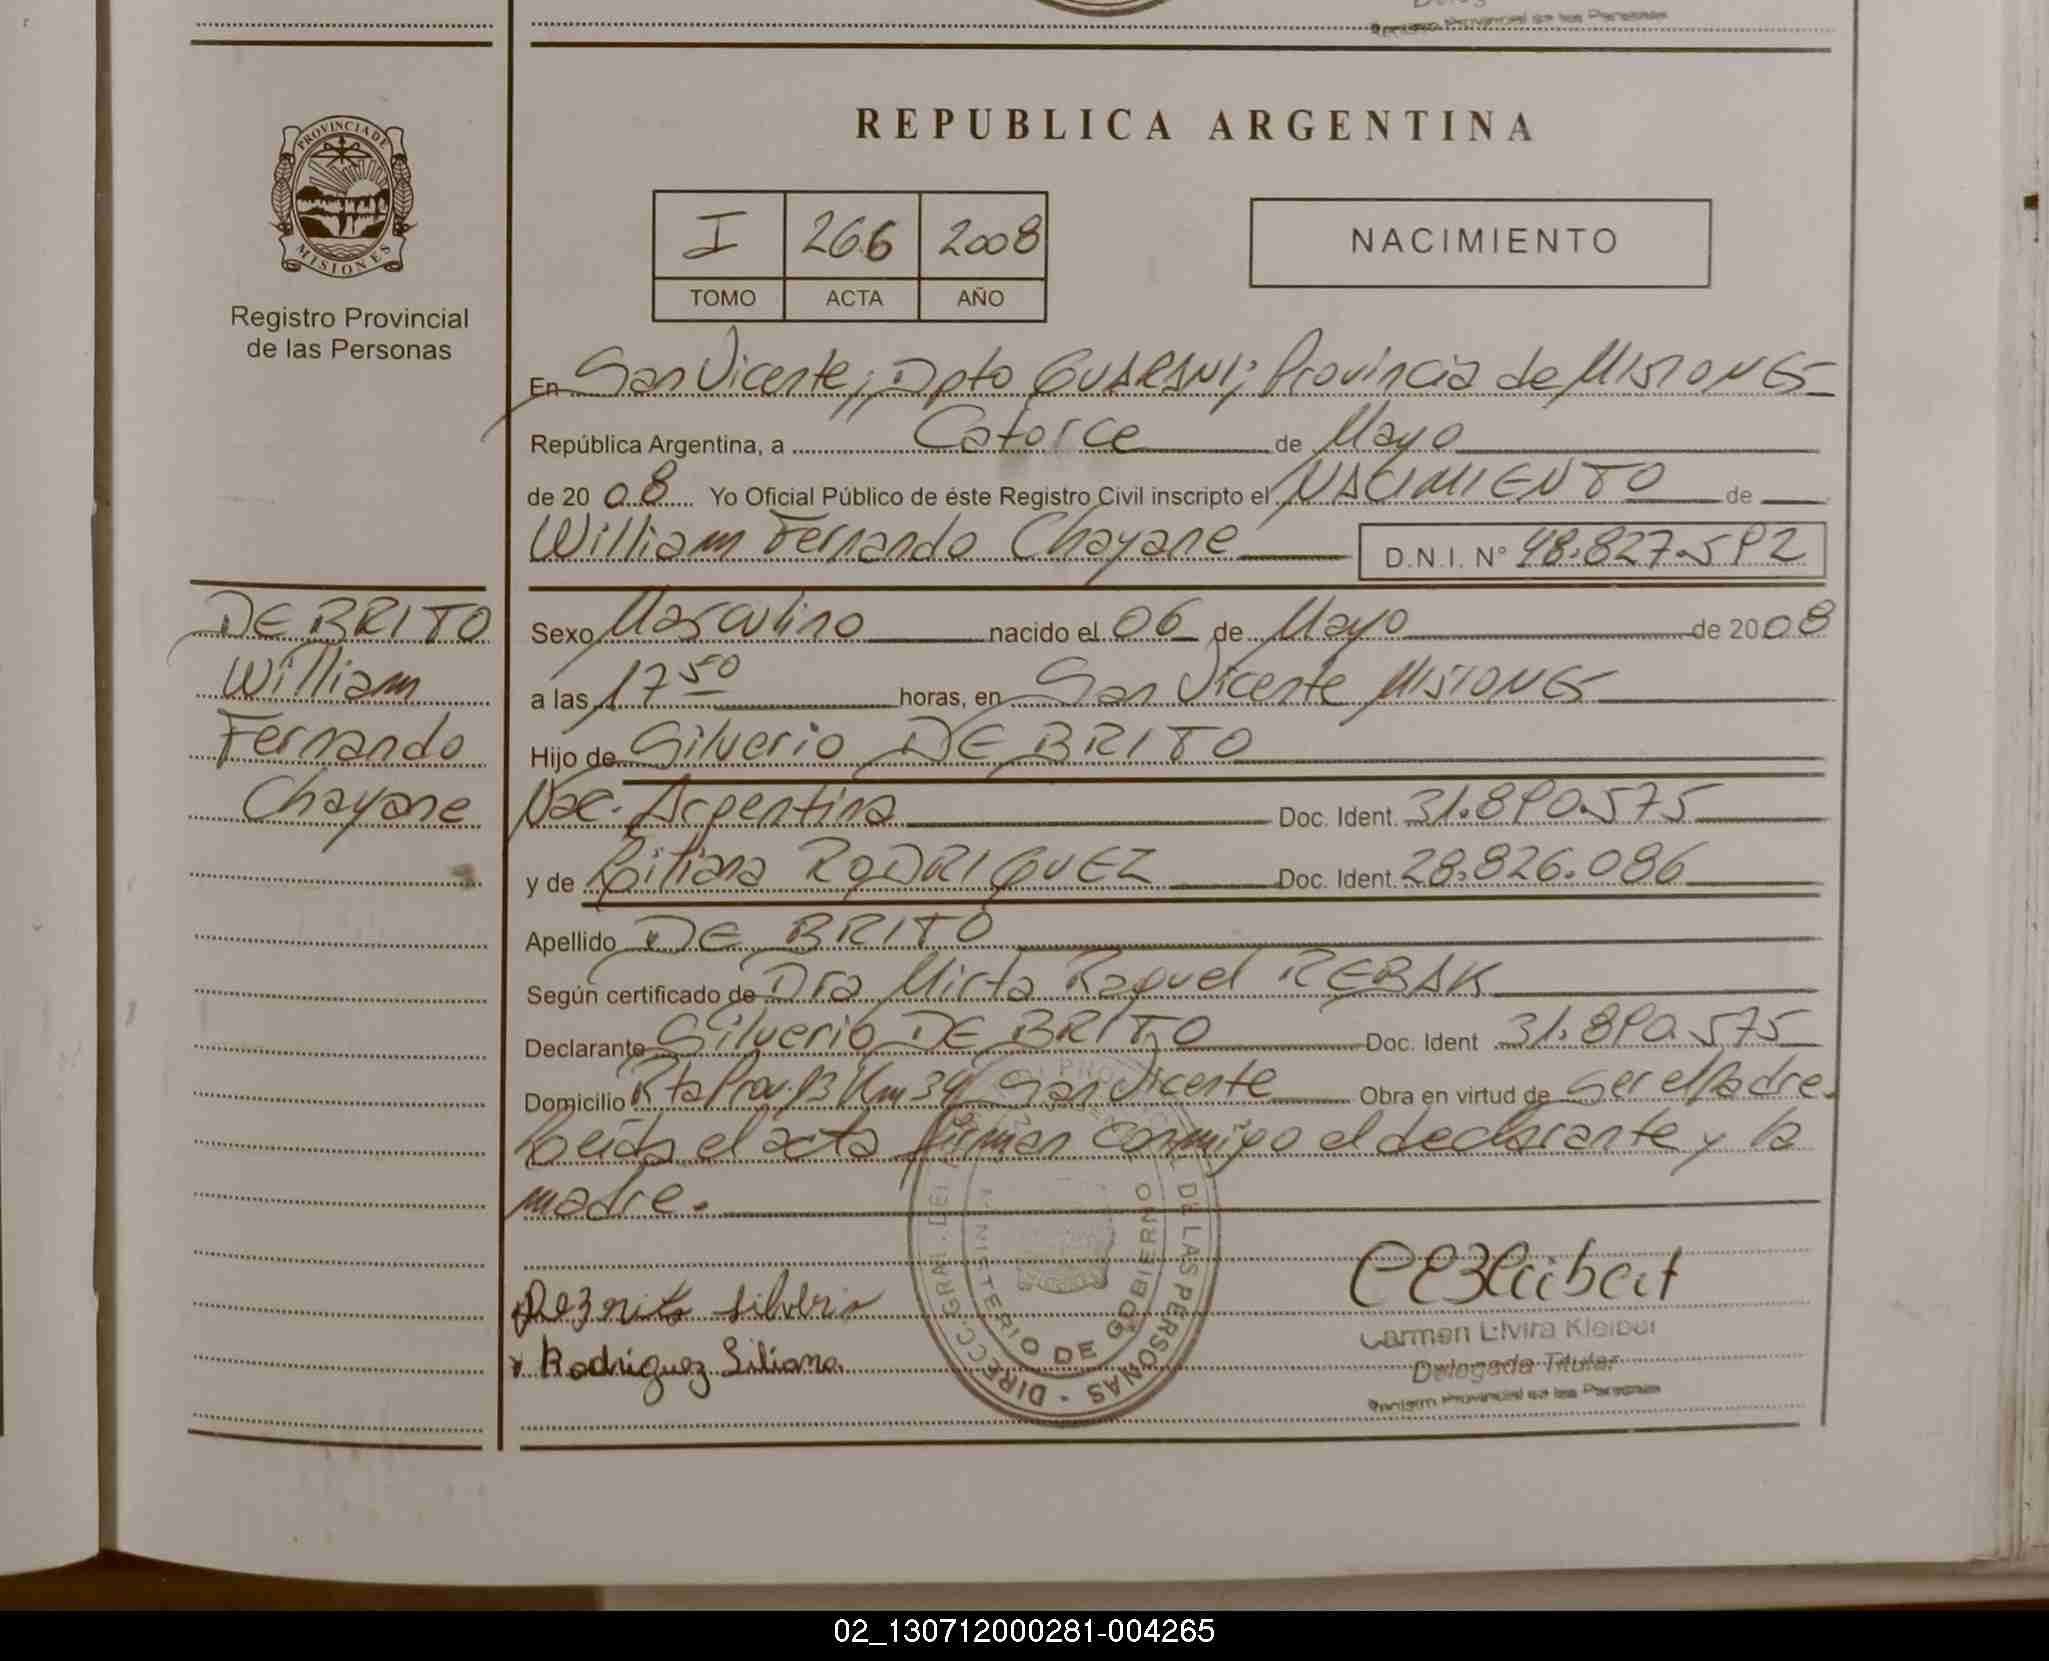 Registro Provincial de las Personas
PROVINCIA DE
MISIONES
Registro Provincial
de las Personas
DE BRITO
William
Fernando
Chayane
REPUBLICA ARGENTINA
I 266 2008
TOMO ACTA AÑO
NACIMIENTO
En San Vicente, Dpto GUARANI; Provincia de MISIONES
República Argentina, a Catorce de Mayo
de 2008 Yo Oficial Público de éste Registro Civil inscripto el NACIMIENTO de
William Fernando Chayane D.N.I. Nº 48.827.592
Sexo Masculino nacido el 06 de Mayo de 2008
a las 17 50 horas, en San Vicente MISIONES
Hijo de Silverio DE BRITO
Nac. Argentina Doc. Ident. 31.890.575
y de Liliana RODRIGUEZ Doc. Ident. 28.826.086
Apellido DE BRITO
Según certificado de Dra Mirta Raquel REBAK
Declarante Silverio DE BRITO Doc. Ident 31.890.575
Domicilio Rta Prov. 13 Km 34 San Vicente Obra en virtud de Ser el Padre.
Leída el acta firman conmigo el declarante y la
madre.
De Brito Silverio
Rodriguez Liliana
DIRECC. GRAL. DEL DE LAS PERSONAS
MINISTERIO DE GOBIERNO
Carmen Elvira Kleiber
Delegada Titular
Registro Provincial de las Personas
02_130712000281-004265